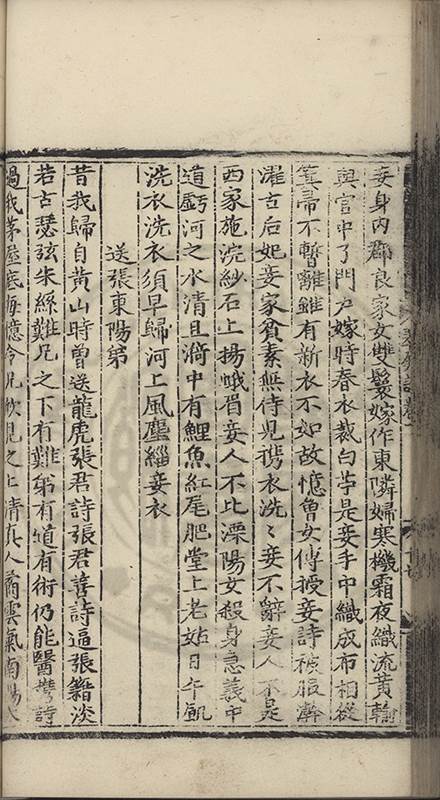 妾身内郡良家女雙鬟嫁作東隣婦寒機霜夜織流黃輸
與官中了門戶嫁時春衣裁白苧是妾手中織成布相從
箕帚不暫離雖有新衣不如故憶魯女傅授妾詩穢服澣
濯古后妃妾家貧素無侍兒携衣洗洗妾不辭妾人不是
西家施浣紗石上揚蛾眉妾人不比溧陽女殺身急義中
道虧河之水清且漪中有鯉魚紅尾肥堂上老姑日午飢
洗衣洗衣須早歸河上風塵緇妾衣
送張東陽第
昔我歸自黃山時曾送龍虎張君詩張君善詩逼張籍淡
若古瑟弦朱絲難兄之下有難弟有道有術仍能醫
過我茅